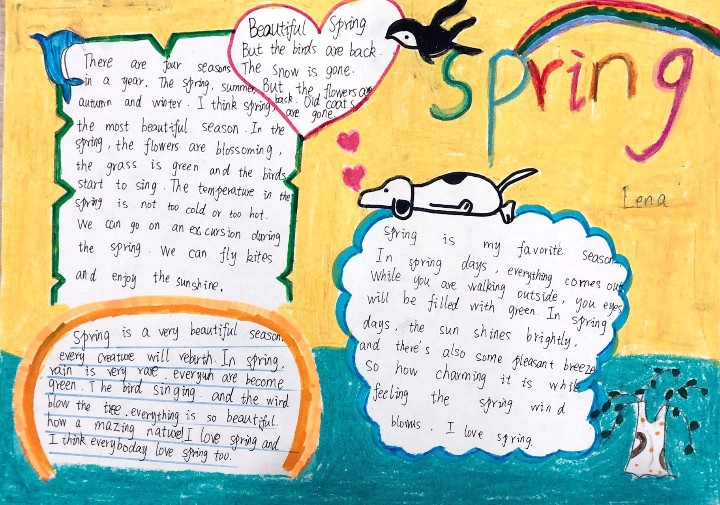 Spring
Lena
Beautiful Spring
But the birds are back.
The snow is gone.
But the flowers are
back. Old coats
are gone.
There are four seasons
in a year. The spring, summer
autumn and winter. I think spring
the most beautiful season. In the
spring, the flowers are blossoming,
the grass is green and the birds
start to sing. The temperature in the
spring is not too cold or too hot.
We can go on an excursion during
the spring. We can fly kites
and enjoy the sunshine.
Spring is my favorite season
In spring days, everything comes out
While you are walking outside, you eyes
will be filled with green. In spring
days, the sun shines brightly,
and there's also some pleasant breeze
So how charming it is while
feeling the spring wind
blows. I love spring.
Spring is a very beautiful season.
every creature will rebirth. In spring,
rain is very rare. everywh are become
green. The bird singing and the wind
blow the tree. everything is so beautiful.
how a mazing nature! I love spring and
I think everyboday love spring too.